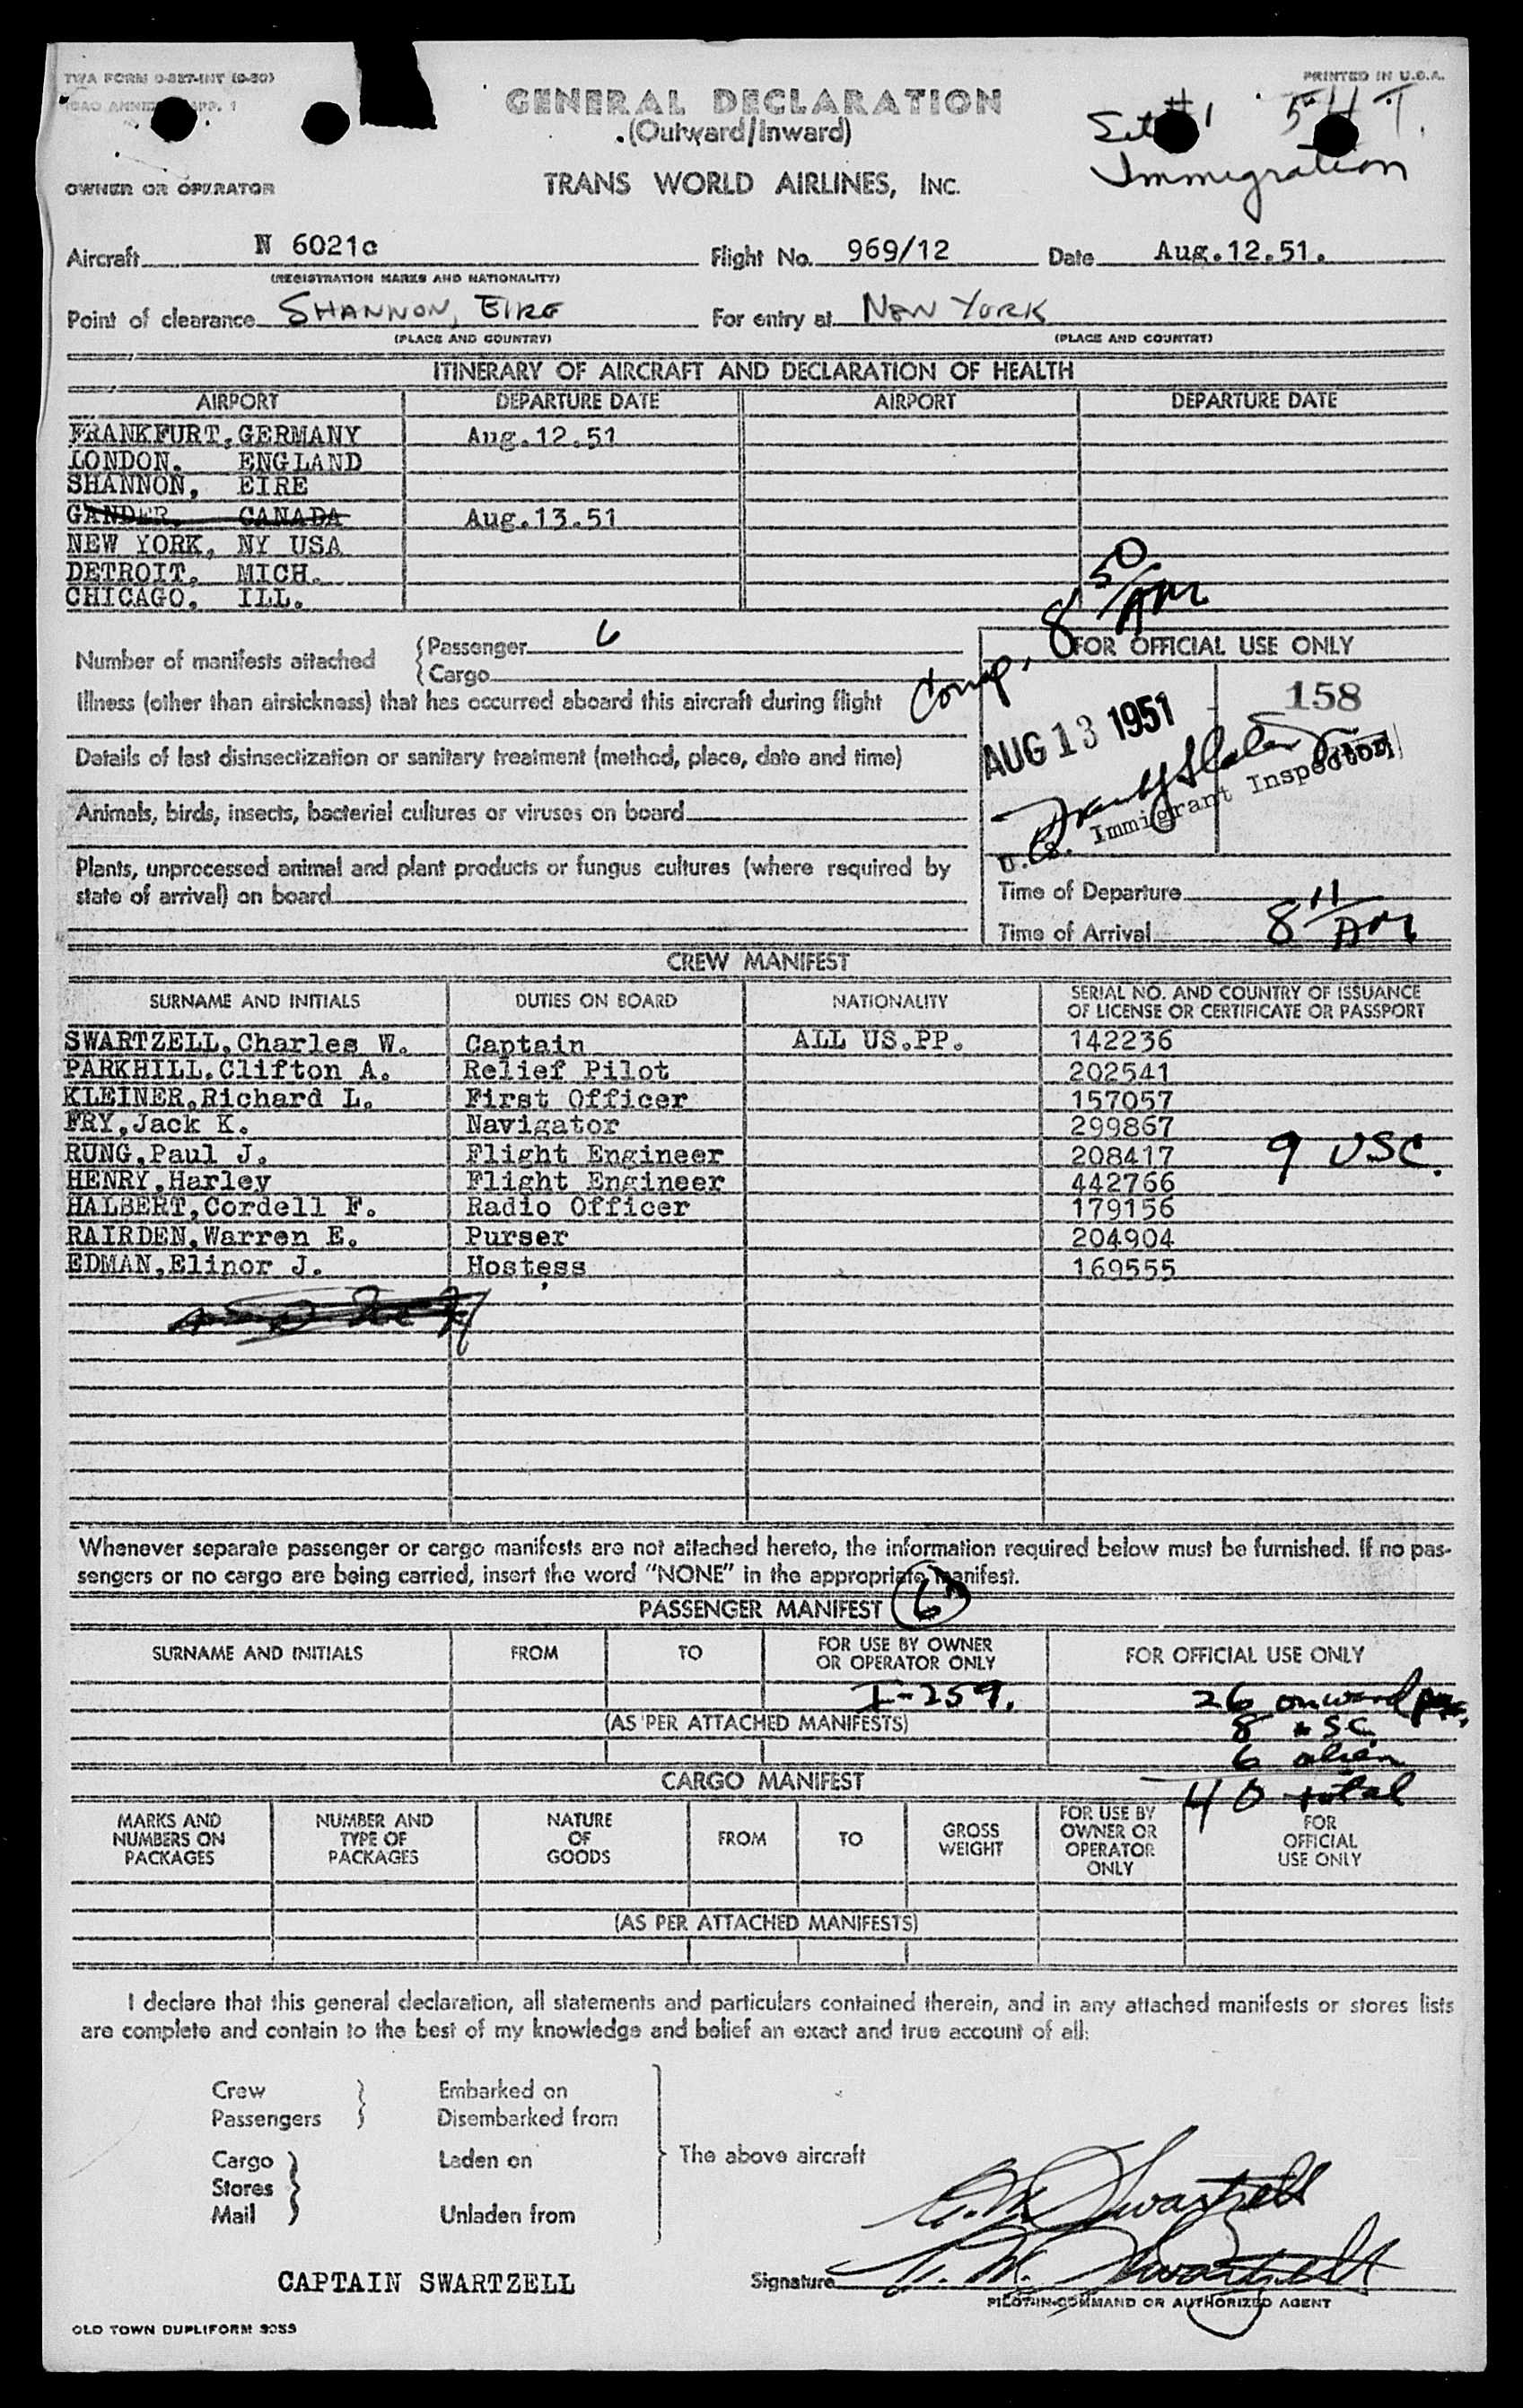 TWA FORM O-827-INT (9-50)
PRINTED IN U.S.A.
GENERAL DECLARATION
(Outward/Inward)
Immigration
OWNER OR OPERATOR
TRANS WORLD AIRLINES, INC.
Aircraft N 6021c Flight No. 969/12 Date Aug.12.51.
(REGISTRATION MARKS AND NATIONALITY)
Point of clearance SHANNON, EIRE For entry at NEW YORK
(PLACE AND COUNTRY) (PLACE AND COUNTRY)
ITINERARY OF AIRCRAFT AND DECLARATION OF HEALTH
AIRPORT DEPARTURE DATE AIRPORT DEPARTURE DATE
FRANKFURT, GERMANY Aug.12.51
LONDON, ENGLAND
SHANNON, EIRE
GANDER, CANADA Aug.13.51
NEW YORK, NY USA
DETROIT, MICH.
CHICAGO, ILL.
Comp. 8 50/AM
Number of manifests attached
Passenger 6
Cargo
FOR OFFICIAL USE ONLY
158
AUG 13 1951
U.S. Immigrant Inspector
Illness (other than airsickness) that has occurred aboard this aircraft during flight
Details of last disinsectization or sanitary treatment (method, place, date and time)
Animals, birds, insects, bacterial cultures or viruses on board
Plants, unprocessed animal and plant products or fungus cultures (where required by
state of arrival) on board
Time of Departure
Time of Arrival 8 11/AM
CREW MANIFEST
SURNAME AND INITIALS DUTIES ON BOARD NATIONALITY SERIAL NO. AND COUNTRY OF ISSUANCE
OF LICENSE OR CERTIFICATE OR PASSPORT
SWARTZELL,Charles W. Captain ALL US.PP. 142236
PARKHILL,Clifton A. Relief Pilot 202541
KLEINER,Richard L. First Officer 157057
FRY,Jack K. Navigator 299867
RUNG,Paul J. Flight Engineer 208417 9 USC.
HENRY,Harley Flight Engineer 442766
HALBERT,Cordell F. Radio Officer 179156
RAIRDEN,Warren E. Purser 204904
EDMAN,Elinor J. Hostess 169555
Whenever separate passenger or cargo manifests are not attached hereto, the information required below must be furnished. If no pas-
sengers or no cargo are being carried, insert the word "NONE" in the appropriate manifest.
PASSENGER MANIFEST 6
SURNAME AND INITIALS FROM TO FOR USE BY OWNER
OR OPERATOR ONLY
FOR OFFICIAL USE ONLY
I-259. 26 onward
(AS PER ATTACHED MANIFESTS) 8 USC
6 alien
40 total
CARGO MANIFEST
MARKS AND
NUMBERS ON
PACKAGES
NUMBER AND
TYPE OF
PACKAGES
NATURE
OF
GOODS
FROM TO GROSS
WEIGHT
FOR USE BY
OWNER OR
OPERATOR
ONLY
FOR
OFFICIAL
USE ONLY
(AS PER ATTACHED MANIFESTS)
I declare that this general declaration, all statements and particulars contained therein, and in any attached manifests or stores lists
are complete and contain to the best of my knowledge and belief an exact and true account of all:
Crew Embarked on
Passengers Disembarked from
Cargo Laden on The above aircraft
Stores
Mail Unladen from
C. W. Swartzell
CAPTAIN SWARTZELL Signature C. W. Swartzell
PILOT-IN-COMMAND OR AUTHORIZED AGENT
OLD TOWN DUPLIFORM 9055